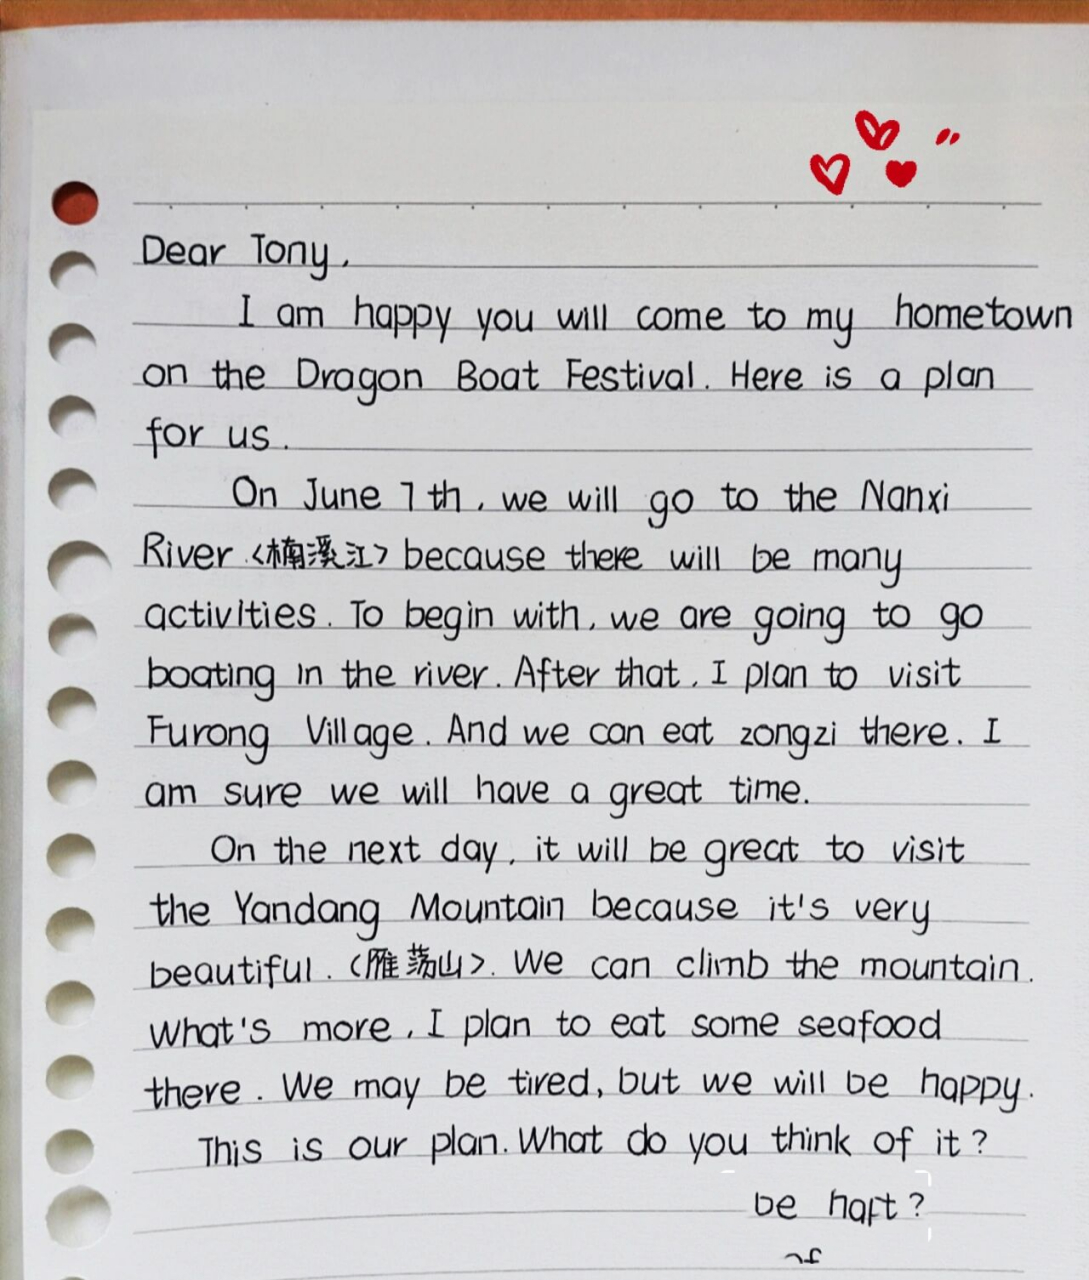 Dear Tony,
I am happy you will come to my hometown
on the Dragon Boat Festival. Here is a plan
for us.
On June 7th, we will go to the Nanxi
River <楠溪江> because there will be many
activities. To begin with, we are going to go
boating in the river. After that, I plan to visit
Furong Village. And we can eat zongzi there. I
am sure we will have a great time.
On the next day, it will be great to visit
the Yandang Mountain because it's very
beautiful. <雁荡山>. We can climb the mountain.
What's more, I plan to eat some seafood
there. We may be tired, but we will be happy.
This is our plan. What do you think of it?
be